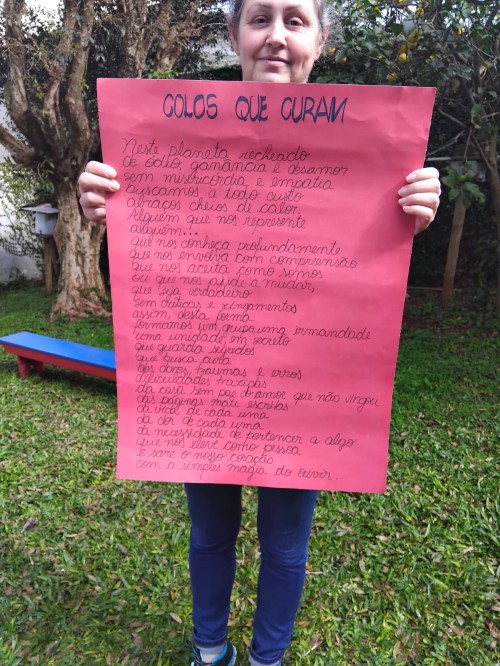 COLOS QUE CURAM
Neste planeta recheado
de ódio, ganância e desamor
sem misericórdia e empatia
buscamos a todo custo
abraços cheios de calor,
Alguém que nos represente
alguém...
que nos conheça profundamente
que nos envolva com compreensão
que nos aceita como somos
ou que nos ajude a mudar,
que seja verdadeiro
sem críticas e xingamentos
assim, desta forma
formamos um grupo, uma irmandade
uma unidade, em secreto
que guarda segredos
que busca cura
das dores, traumas e erros
dificuldades traições
da casa sem paz do amor que não vingou
das páginas male escritas
da vida de cada uma
da dor de cada uma
da necessidade de pertencer a algo
que nos eleve como pessoa
e sare o nosso coração
com a simples magia do ouvir.